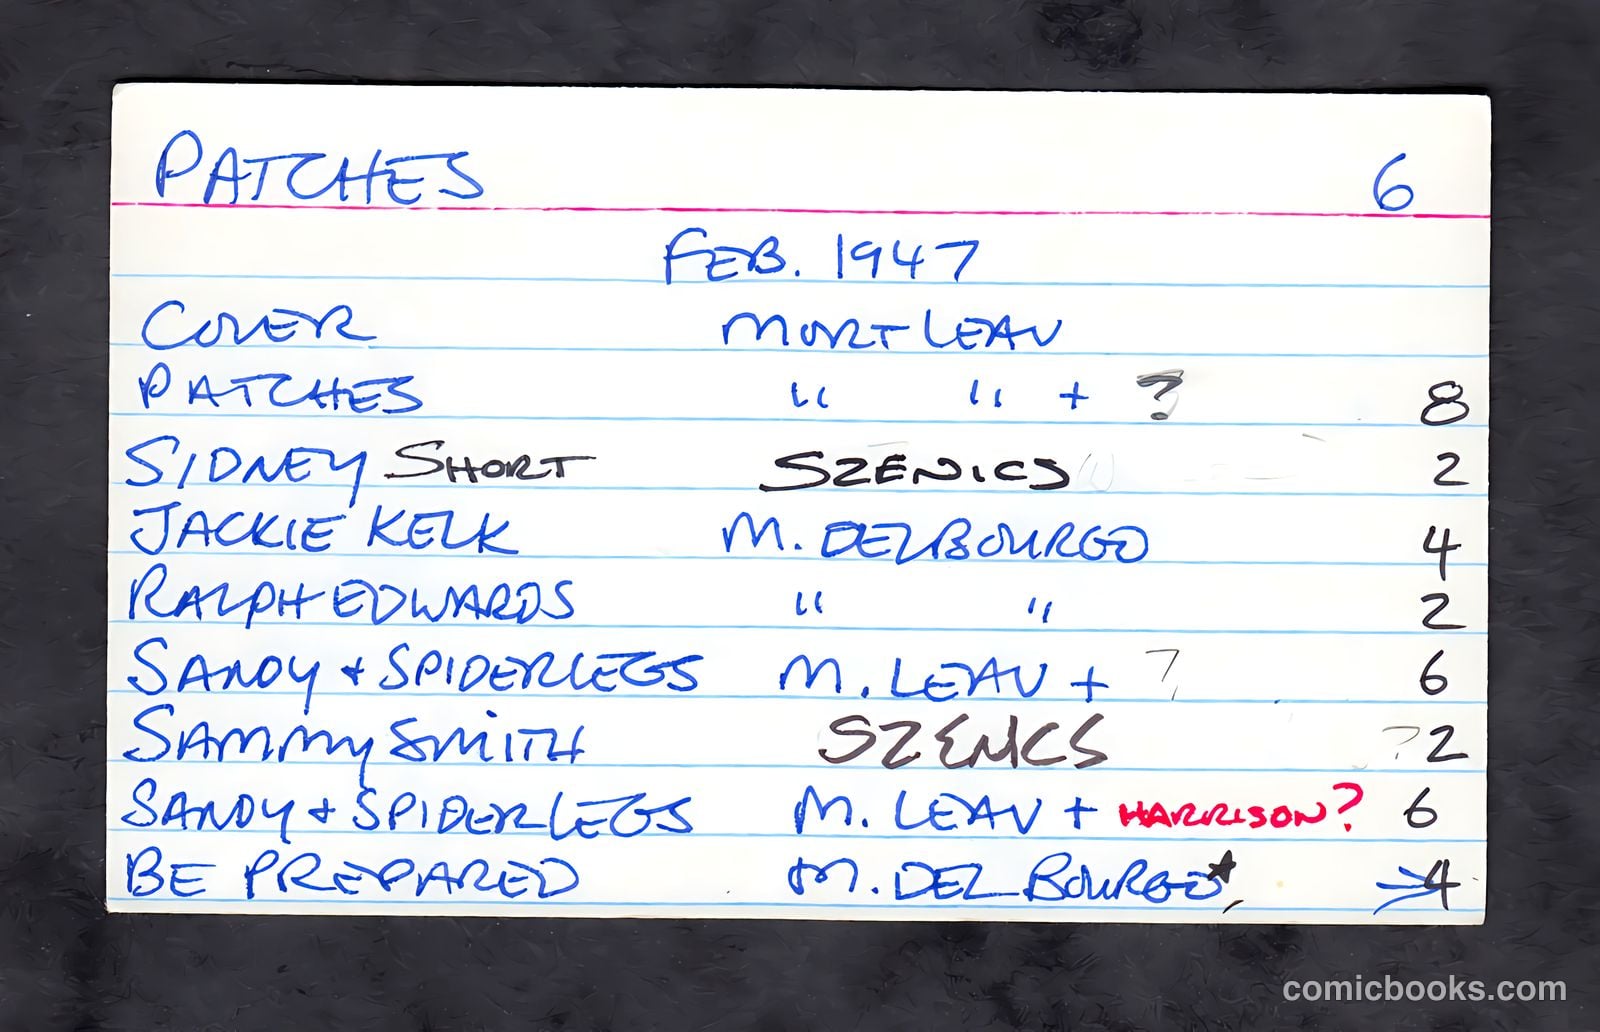 PATCHES 6
FEB. 1947
COVER MORT LEAV
PATCHES " " + ? 8
SIDNEY SHORT SZENICS 2
JACKIE KELK M. DELBOURGO 4
RALPH EDWARDS " " 2
SANDY + SPIDERLEGS M. LEAV + ? 6
SAMMY SMITH SZENICS ? 2
SANDY + SPIDERLEGS M. LEAV + HARRISON? 6
BE PREPARED M. DEL BOURGO★ 4
comicbooks.com